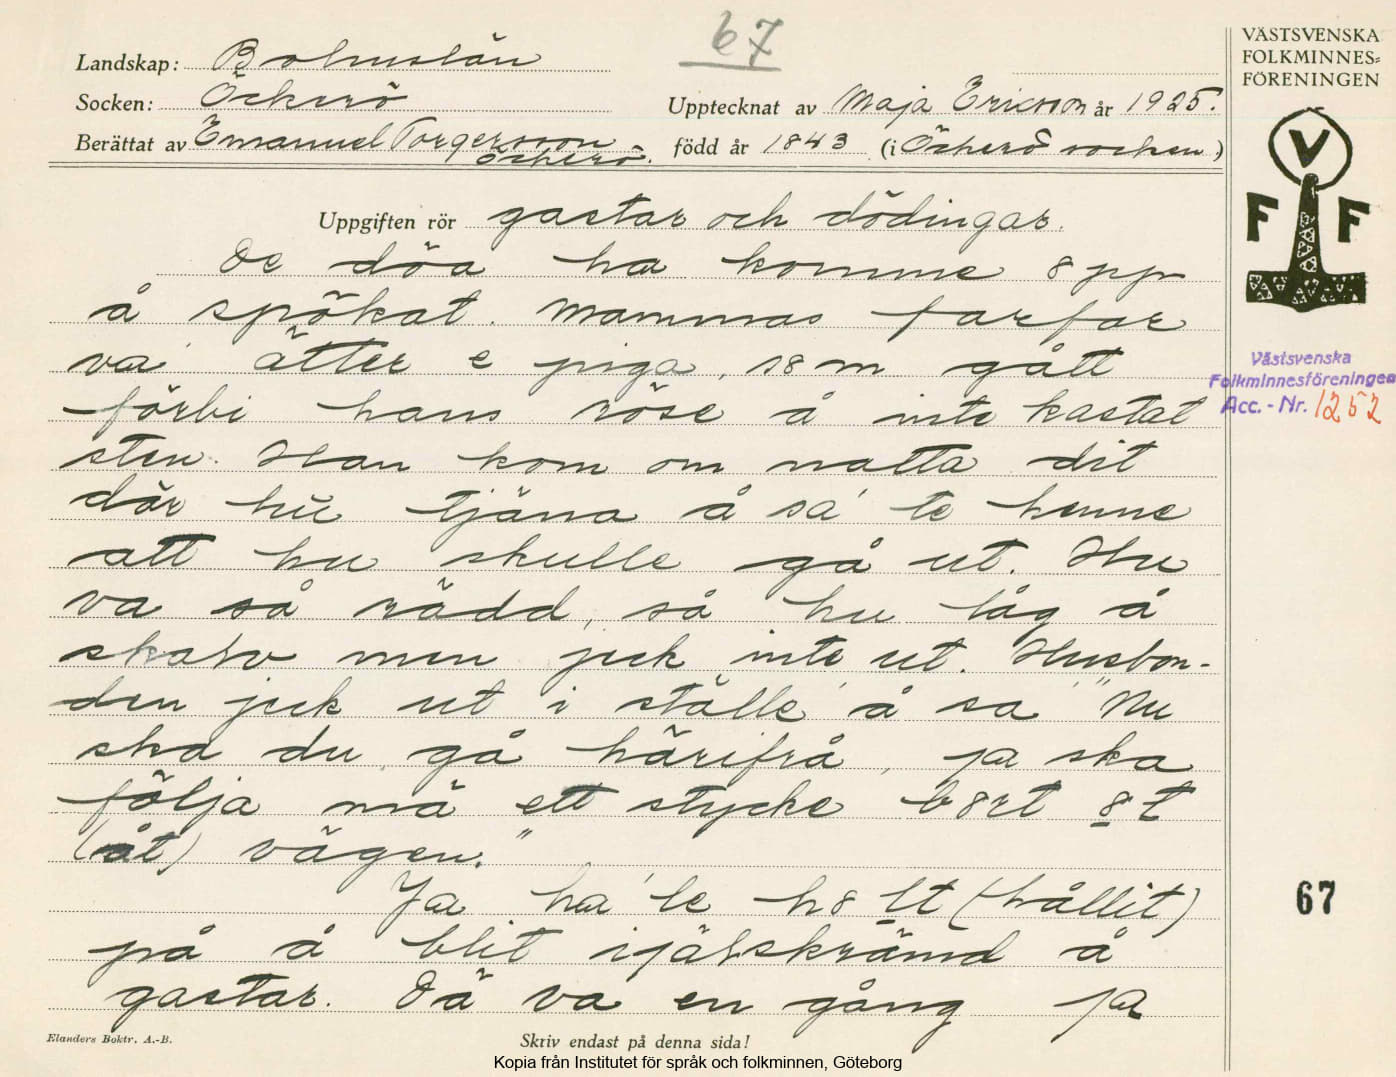 67
VÄSTSVENSKA
FOLKMINNES=
FÖRENINGEN
Landskap: Bohuslän
Socken: Öckerö
Upptecknat av Maja Ericson år 1925.
Berättat av Emanuel Torgersson
Öckerö.
född år 1843 (i Öckerö socken)
V
F F
Uppgiften rör gastar och dödingar.
De döa ha komme 8pp
å spökat. Mammas farfar
va ätter e piga, s8m gått
förbi hans röse å inte kastat
sten. Han kom om natta dit
där hu tjäna å sa te henne
att hu skulle gå ut. Hu
va så rädd, så hu låg å
skalv men jeck inte ut. Husbon-
den jeck ut i ställe å sa "Nu
ska du gå härifrå, ja ska
följa mä ett stycke b8rt 8t
(åt) vägen."
Ja ha le h8lt (hållit)
på å blit ijälskrämd å
gastar. Dä va en gång ja
Västsvenska
Folkminnesföreningen
Acc.-Nr. 1252
67
Elanders Boktr. A.-B.
Skriv endast på denna sida!
Kopia från Institutet för språk och folkminnen, Göteborg